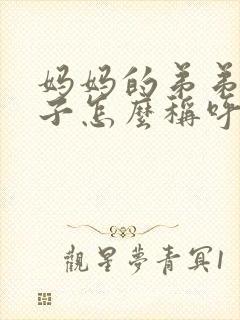 妈妈的弟弟
子怎麼稱呼
觀星夢青冥1